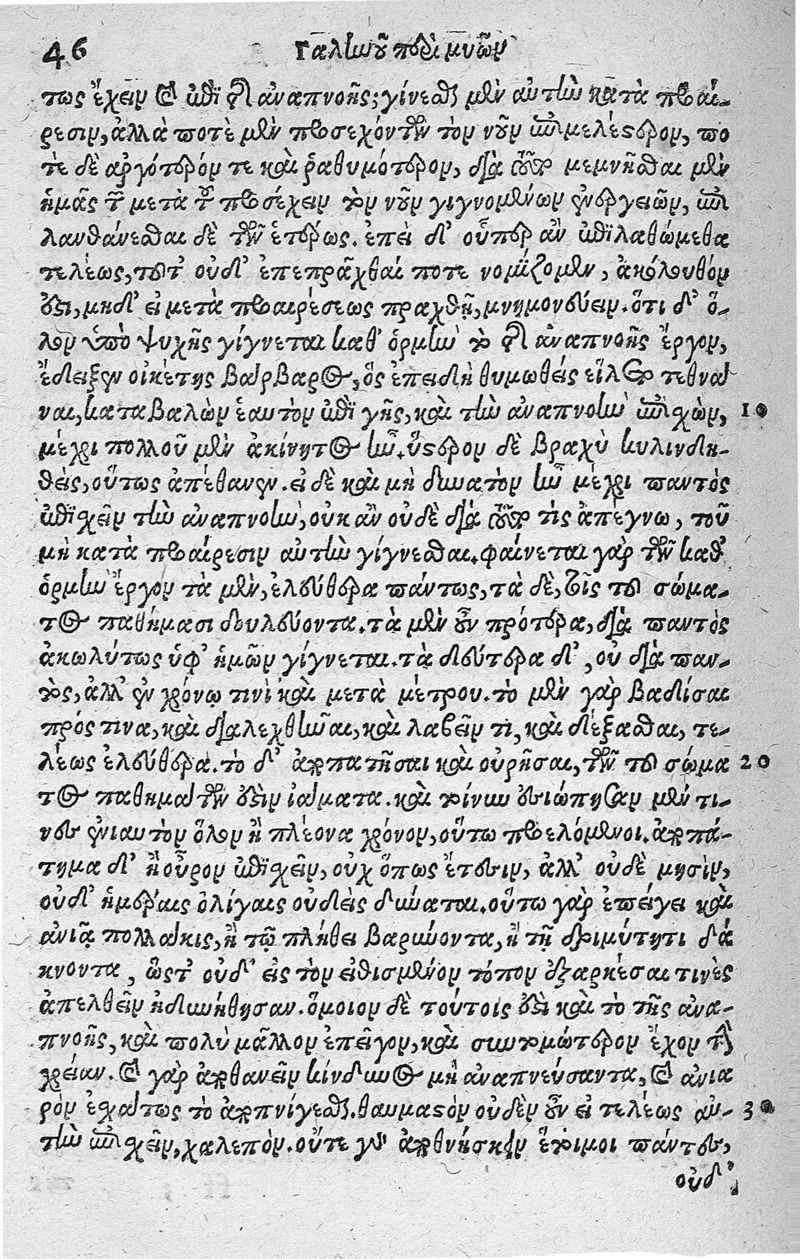 46 Γαλίωοῦ περὶ μυῶν
τως ἔχειν καὶ ἐπὶ τῆς ἀναπνοῆς; γίνεσθαι μὲν αὐτὴν κατὰ προαί-
ρεσιν, ἀλλὰ ποτὲ μὲν προσεχόντων τὸν νοῦν ἐπιμελέστερον, πο
τὲ δὲ ἀργότερόν τε καὶ ῥαθυμότερον, διὰ τοῦτο μεμνῆσθαι μὲν
ἡμᾶς τῶν μετὰ τοῦ προσέχειν τὸν νοῦν γιγνομένων ἐνεργειῶν, ἐπι
λανθάνεσθαι δὲ τῶν ἑτέρως. ἐπεὶ δ' οὗπερ ἂν ἐπιλαθώμεθα
τελέως, τοῦτ' οὐδ' ἐπεπρᾶχθαί ποτε νομίζομεν, ἀκόλουθόν
ἐστι, μηδ' εἰ μετὰ προαιρέσεως πραχθῇ, μνημονεύειν. ὅτι δ' ὅ-
λον ὑπὸ ψυχῆς γίγνεται καθ' ὁρμὴν τὸ τῆς ἀναπνοῆς ἔργον,
ἔδειξεν οἰκέτης βάρβαρος, ὃς ἐπειδὴ θυμωθεὶς εἵλετο τεθνά
ναι, καταβαλὼν ἑαυτὸν ἐπὶ γῆς, καὶ τὴν ἀναπνοὴν ἐπισχὼν, 10
μέχρι πολλοῦ μὲν ἀκίνητος ἦν. ὕστερον δὲ βραχὺ κυλινδη-
θεὶς, οὕτως ἀπέθανεν. εἰ δὲ καὶ μὴ δυνατὸν ἦν μέχρι παντὸς
ἐπισχεῖν τὴν ἀναπνοὴν, οὐκ ἂν οὐδὲ διὰ τοῦτό τις ἀπέγνω, τοῦ
μὴ κατὰ προαίρεσιν αὐτὴν γίγνεσθαι. φαίνεται γὰρ τῶν καθ'
ὁρμὴν ἔργον τὰ μὲν, ἐλεύθερα πάντως, τὰ δὲ, τοῖς τοῦ σώμα-
τος παθήμασι δουλεύοντα. τὰ μὲν οὖν πρότερα, διὰ παντὸς
ἀκωλύτως ὑφ' ἡμῶν γίγνεται. τὰ δεύτερα δ', οὐ διὰ παν-
τὸς, ἀλλ' ἐν χρόνῳ τινὶ καὶ μετὰ μέτρου. τὸ μὲν γὰρ βαδίσαι
πρός τινα, καὶ διαλεχθῆναι, καὶ λαβεῖν τι, καὶ δέξασθαι, τε-
λέως ἐλεύθερα. τὸ δ' ἀποπατῆσαι καὶ οὐρῆσαι, τῶν τοῦ σώμα 20
τος παθημάτων ἐστὶν ἰάματα. καὶ τοίνυν ἐσιώπησαν μέν τι-
νες ἐνιαυτὸν ὅλον ἢ πλέονα χρόνον, οὕτω προελόμενοι. ἀποπά-
τημα δ' ἢ οὖρον ἐπισχεῖν, οὐχ ὅπως ἔτεσιν, ἀλλ' οὐδὲ μησὶν,
οὐδ' ἡμέραις ὀλίγαις οὐδεὶς δύναται. οὕτω γὰρ ἐπείγει καὶ
ἀνιᾷ πολλάκις, ἢ τῷ πλήθει βαρύνοντα, ἢ τῇ δριμύτητι δά
κνοντα, ὥστ' οὐδ' εἰς τὸν εἰθισμένον τόπον ἐξαρκέσαι τινὲς
ἀπελθεῖν ἠδυνήθησαν. ὅμοιον δὲ τούτοις ἐστὶ καὶ τὸ τῆς ἀνα-
πνοῆς, καὶ πολὺ μᾶλλον ἐπεῖγον, καὶ συντομώτερον ἔχον τὴν
χρείαν. καὶ γὰρ ἀποθανεῖν κίνδυνος μὴ ἀναπνεύσαντα, καὶ ἀνια
ρὸν ἐσχάτως τὸ ἀποπνίγεσθαι. θαυμαστὸν οὐδὲν οὖν εἰ τελέως αὐ- 30
τὴν ἐπισχεῖν, χαλεπόν. οὔτε γὰρ ἀποθνήσκειν ἕτοιμοι πάντες,
οὐδ'